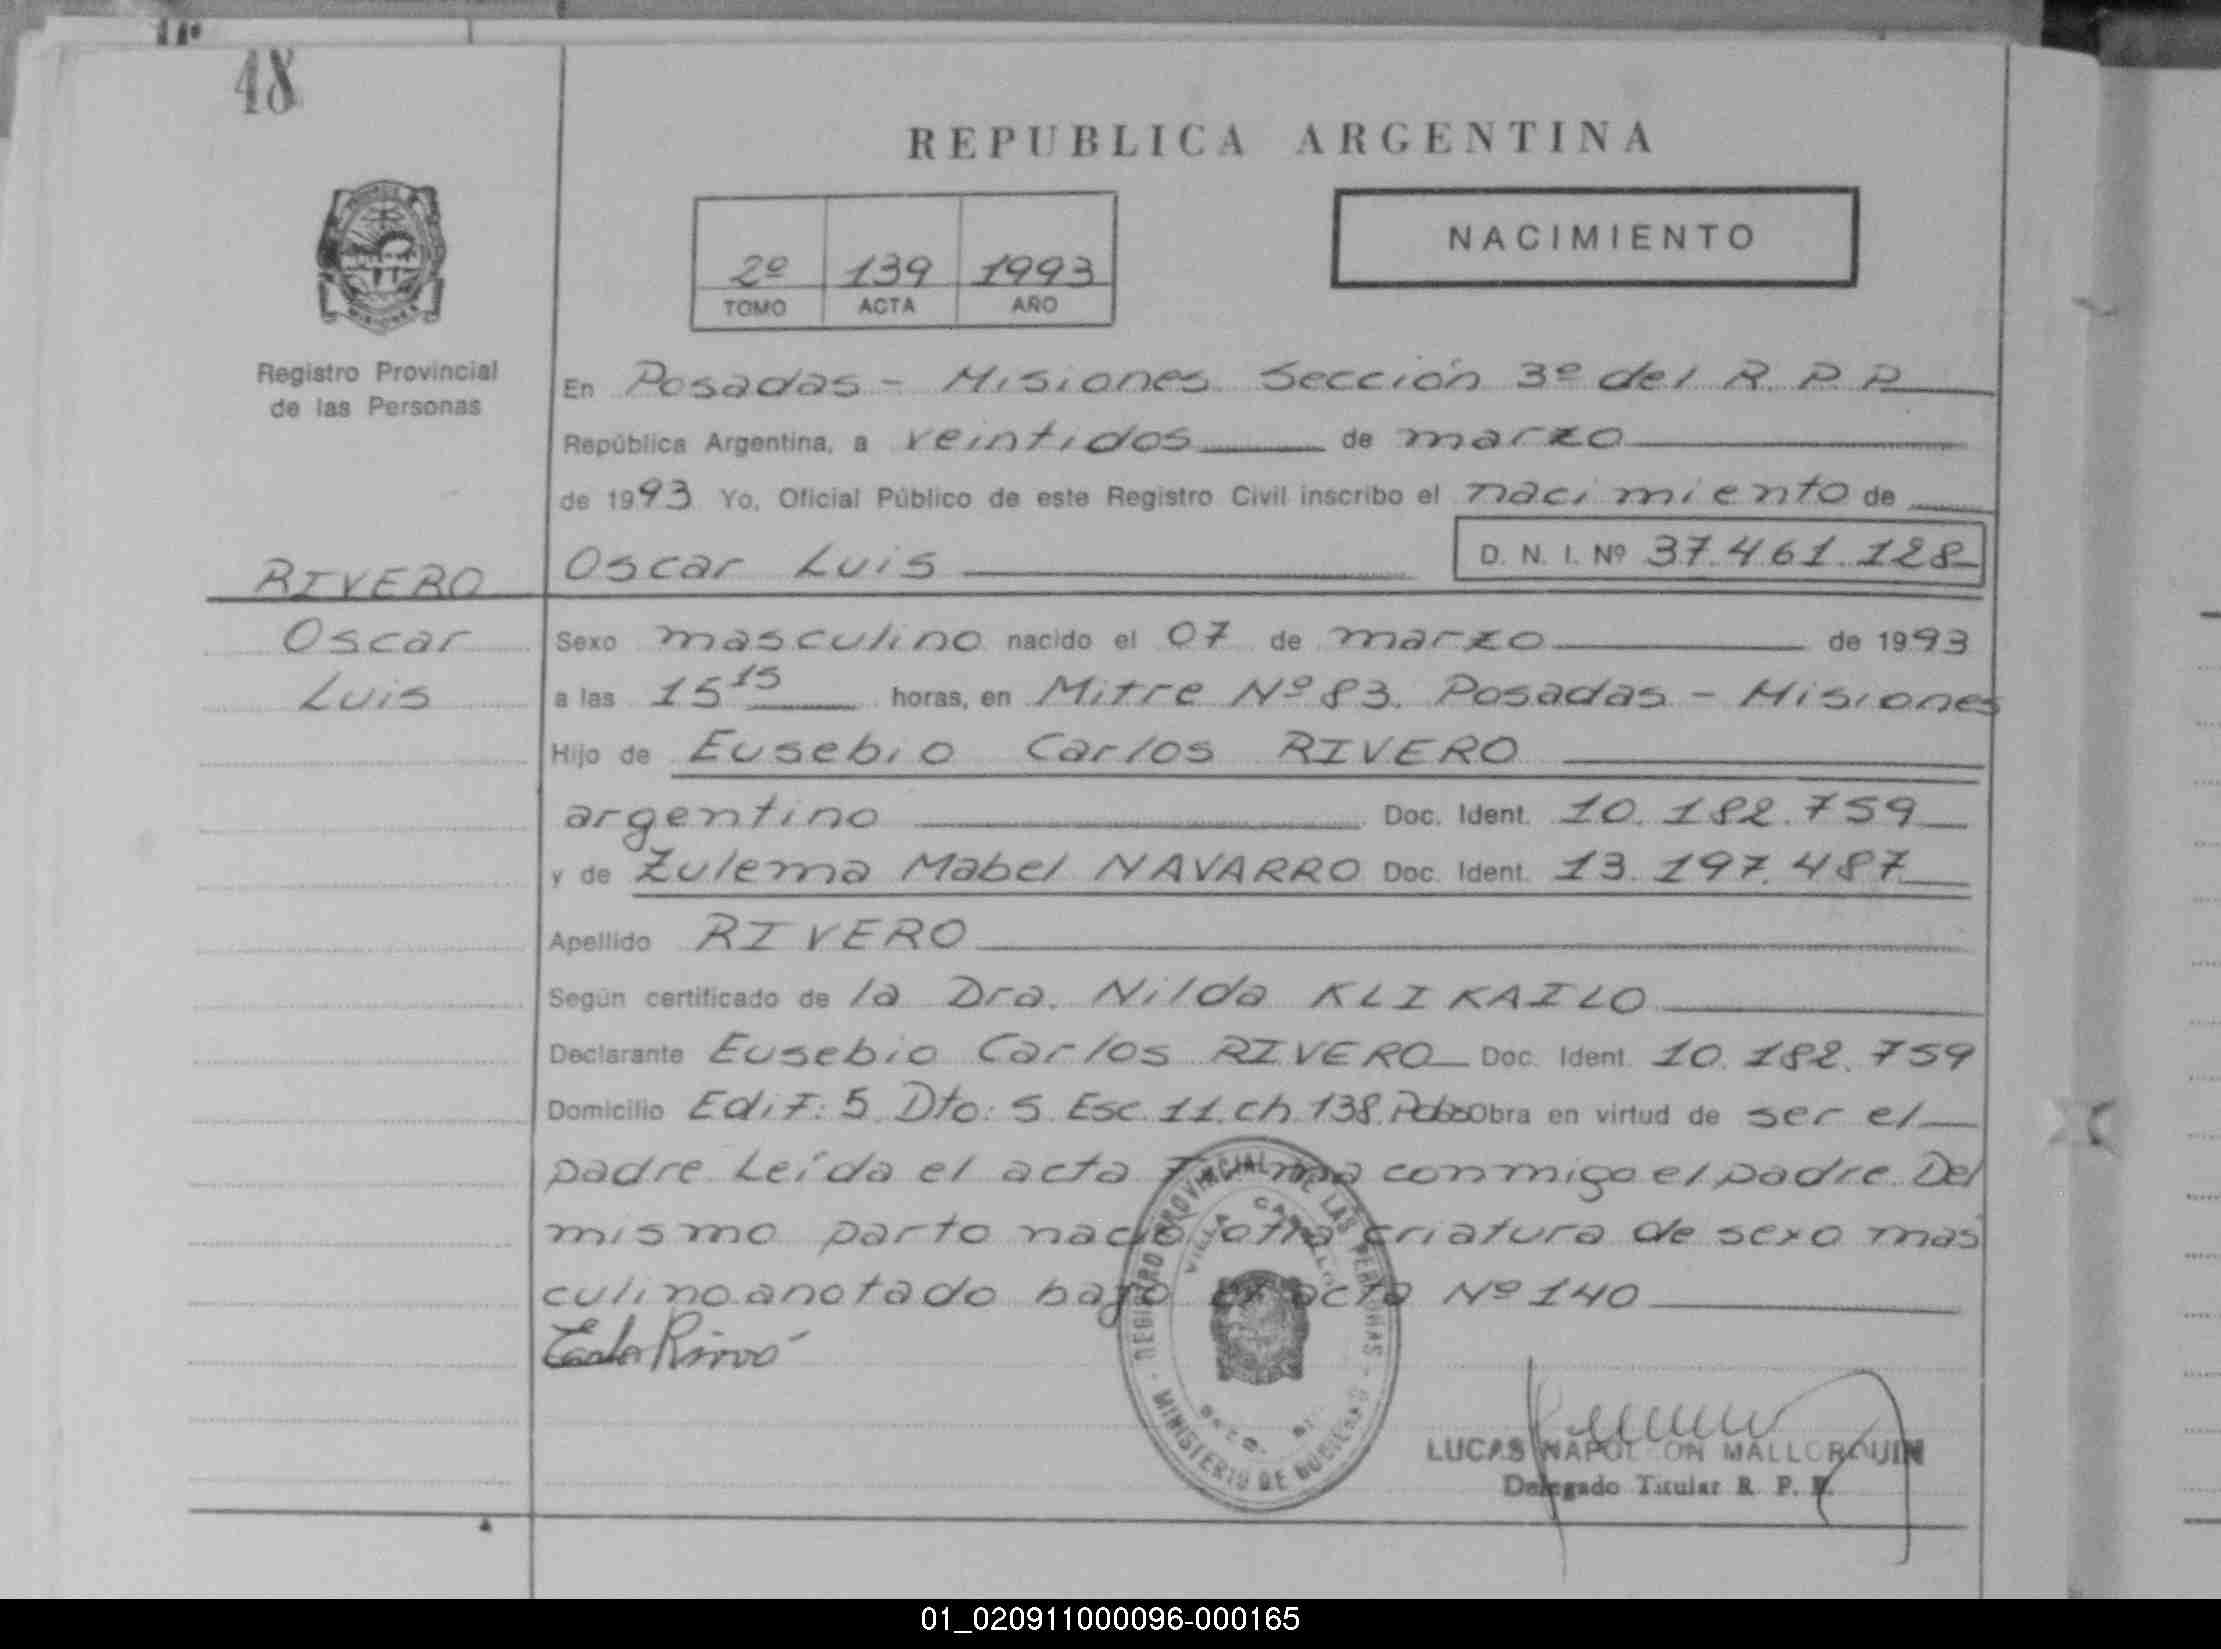 48
REPUBLICA ARGENTINA
NACIMIENTO
2º 139 1993
TOMO ACTA AÑO
Registro Provincial
de las Personas
En Posadas - Misiones Sección 3º del R. P. P.
República Argentina, a veintidos de marzo
de 1993 Yo, Oficial Público de este Registro Civil inscribo el nacimiento de
RIVERO
Oscar Luis D. N. I. Nº 37.461.128
Oscar
Luis
Sexo masculino nacido el 07 de marzo de 1993
a las 15 15 horas, en Mitre Nº 83. Posadas - Misiones
Hijo de Eusebio Carlos RIVERO
argentino Doc. Ident. 10.182.759
y de Zulema Mabel NAVARRO Doc. Ident. 13.197.487
Apellido RIVERO
Según certificado de la Dra. Nilda KLIKAILO
Declarante Eusebio Carlos RIVERO Doc. Ident. 10.182.759
Domicilio Edif: 5 Dto: 5 Esc. 11. ch. 138. Obra en virtud de ser el
padre Leída el acta Firma conmigo el padre. Del
mismo parto nació otra criatura de sexo mas
culino anotado bajo el acta Nº 140
REGISTRO PROVINCIAL DE LAS PERSONAS
MINISTERIO DE GOBIERNO
VILLA CABELLO
LUCAS NAPOLEON MALLORQUIN
Delegado Titular R. P. P.
01_020911000096-000165